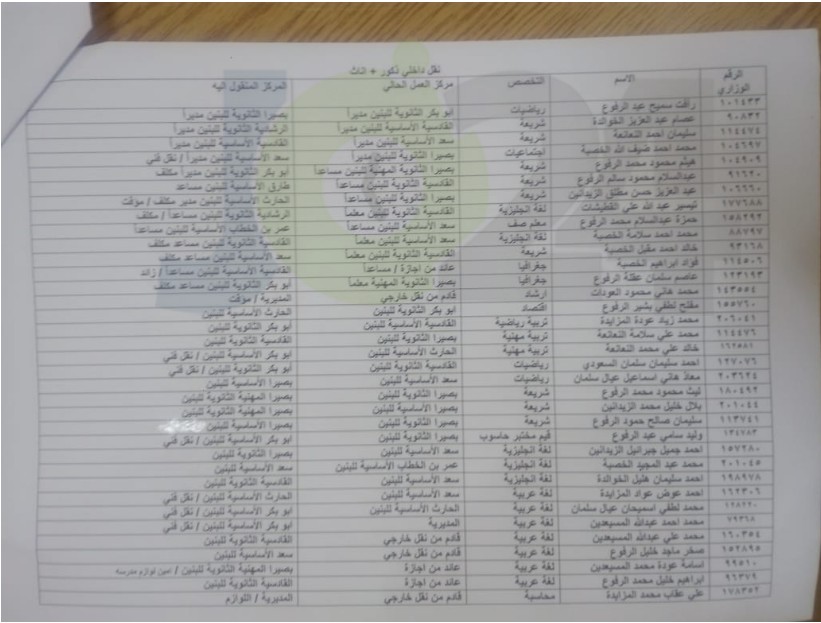 نقل داخلي ذكور + اناث
الرقم الوزاري الاسم التخصص مركز العمل الحالي المركز المنقول اليه
١٠١٤٣٣ رأفت سميح عبد الرفوع رياضيات ابو بكر الثانوية للبنين مديراً بصيرا الثانوية للبنين مديراً
٩٠٨٣٢ عصام عبد العزيز الخوالدة شريعة القادسية الأساسية للبنين مديراً الرشادية الثانوية للبنين مديراً
١١٤٤٧٤ سليمان احمد النعانعة شريعة سعد الأساسية للبنين مديراً القادسية الأساسية للبنين مديراً
١٠٤٦٩٧ محمد احمد ضيف الله الخصبة اجتماعيات بصيرا الثانوية للبنين مديراً سعد الأساسية للبنين مديراً / نقل فني
١٠٤٩٠٩ هيثم محمود محمد الرفوع شريعة بصيرا الثانوية المهنية للبنين مساعداً ابو بكر الثانوية للبنين مديراً مكلف
٩١٦٢٠ عبدالسلام محمود سالم الرفوع شريعة القادسية الثانوية للبنين مساعداً طارق الأساسية للبنين مساعد
١٠٦٦٦٠ عبد العزيز حسن مطلق الزيدانين شريعة بصيرا الثانوية للبنين مساعداً الحارث الأساسية للبنين مدير مكلف / مؤقت
١٧٧٦٨٨ تيسير عبد الله علي القطيشات لغة انجليزية القادسية الثانوية للبنين معلماً الرشادية الثانوية للبنين مساعداً / مكلف
١٥٨٢٩٢ حمزة عبدالسلام محمد الرفوع معلم صف سعد الأساسية للبنين مساعداً عمر بن الخطاب الأساسية للبنين مساعداً
٨٨٧٩٧ محمد احمد سلامة الخصبة لغة انجليزية سعد الأساسية للبنين معلماً القادسية الثانوية للبنين مساعد مكلف
٩٣١٦٨ خالد احمد مقبل الخصبة شريعة القادسية الثانوية للبنين معلماً سعد الأساسية للبنين مساعد مكلف
١١٤٥٠٦ فواد ابراهيم الخصبة جغرافيا عائد من اجازة / مساعداً القادسية الأساسية للبنين مساعداً / زائد
١٢٣١٩٣ عاصم سلمان عقلة الرفوع جغرافيا بصيرا الثانوية المهنية معلماً ابو بكر الثانوية للبنين مساعد مكلف
١٤٣٥٥٤ محمد هاني محمود العودات ارشاد قادم من نقل خارجي المديرية / مؤقت
١٥٥٧٦٠ مفلح لطفي بشير الرفوع اقتصاد ابو بكر الثانوية للبنين الحارث الأساسية للبنين
٢٠٦٠٤١ محمد زياد عودة المزايدة تربية رياضية القادسية الأساسية للبنين ابو بكر الثانوية للبنين
١١٤٤٧٦ محمد علي سلامة النعانعة تربية مهنية بصيرا الثانوية للبنين القادسية الثانوية للبنين
١٦٢٥٨١ خالد علي محمد النعانعة تربية مهنية الحارث الأساسية للبنين ابو بكر الأساسية للبنين / نقل فني
١٢٧٠٧٦ احمد سليمان سلمان السعودي رياضيات القادسية الثانوية للبنين ابو بكر الثانوية للبنين / نقل فني
٢٠٣٦٢٤ معاذ هاني اسماعيل عيال سلمان رياضيات سعد الأساسية للبنين بصيرا الأساسية للبنين
١٨٠٤٩٢ ليث محمود محمد الرفوع شريعة بصيرا الثانوية للبنين بصيرا المهنية الثانوية للبنين
٢٠١٠٤٤ بلال خليل محمد الزيدانين شريعة بصيرا الأساسية للبنين بصيرا المهنية الثانوية للبنين
١١٣٧٤١ سليمان صالح حمود الرفوع شريعة القادسية الثانوية للبنين بصيرا الأساسية للبنين
١٣٤٧٨٣ وليد سامي عبد الرفوع قيم مختبر حاسوب بصيرا الثانوية للبنين ابو بكر الأساسية للبنين / نقل فني
١٥٧٢٨٠ احمد جميل جبرائيل الزيدانين لغة انجليزية سعد الأساسية للبنين بصيرا الثانوية للبنين
٢٠١٠٤٥ محمد عبد المجيد الخصبة لغة انجليزية عمر بن الخطاب الأساسية للبنين سعد الأساسية للبنين
١٩٨٩٧٨ احمد سليمان هليل الخوالدة لغة انجليزية سعد الأساسية للبنين القادسية الثانوية للبنين
١٦٢٣٠٦ احمد عوض عواد المزايدة لغة عربية القادسية الثانوية للبنين الحارث الأساسية للبنين / نقل فني
١٢٨٢٢٠ محمد لطفي اسميحان عيال سلمان لغة عربية الحارث الأساسية للبنين ابو بكر الأساسية للبنين / نقل فني
٧٩٣٦٨ محمد احمد عبدالله المسيعدين لغة عربية المديرية ابو بكر الأساسية للبنين / نقل فني
١٦٠٣٥٤ محمد علي عبدالله المسيعدين لغة عربية قادم من نقل خارجي القادسية الثانوية للبنين
١٥٢٨٩٥ صخر ماجد خليل الرفوع لغة عربية قادم من نقل خارجي سعد الأساسية للبنين
٩٩٥١٠ اسامة عودة محمد المسيعدين لغة عربية عائد من اجازة بصيرا المهنية الثانوية للبنين / امين لوازم مدرسه
٩٦٣٧٩ ابراهيم خليل محمد الرفوع لغة عربية عائد من اجازة القادسية الثانوية للبنين
١٧٨٣٥٢ علي عقاب محمد المزايدة محاسبة قادم من نقل خارجي المديرية / اللوازم